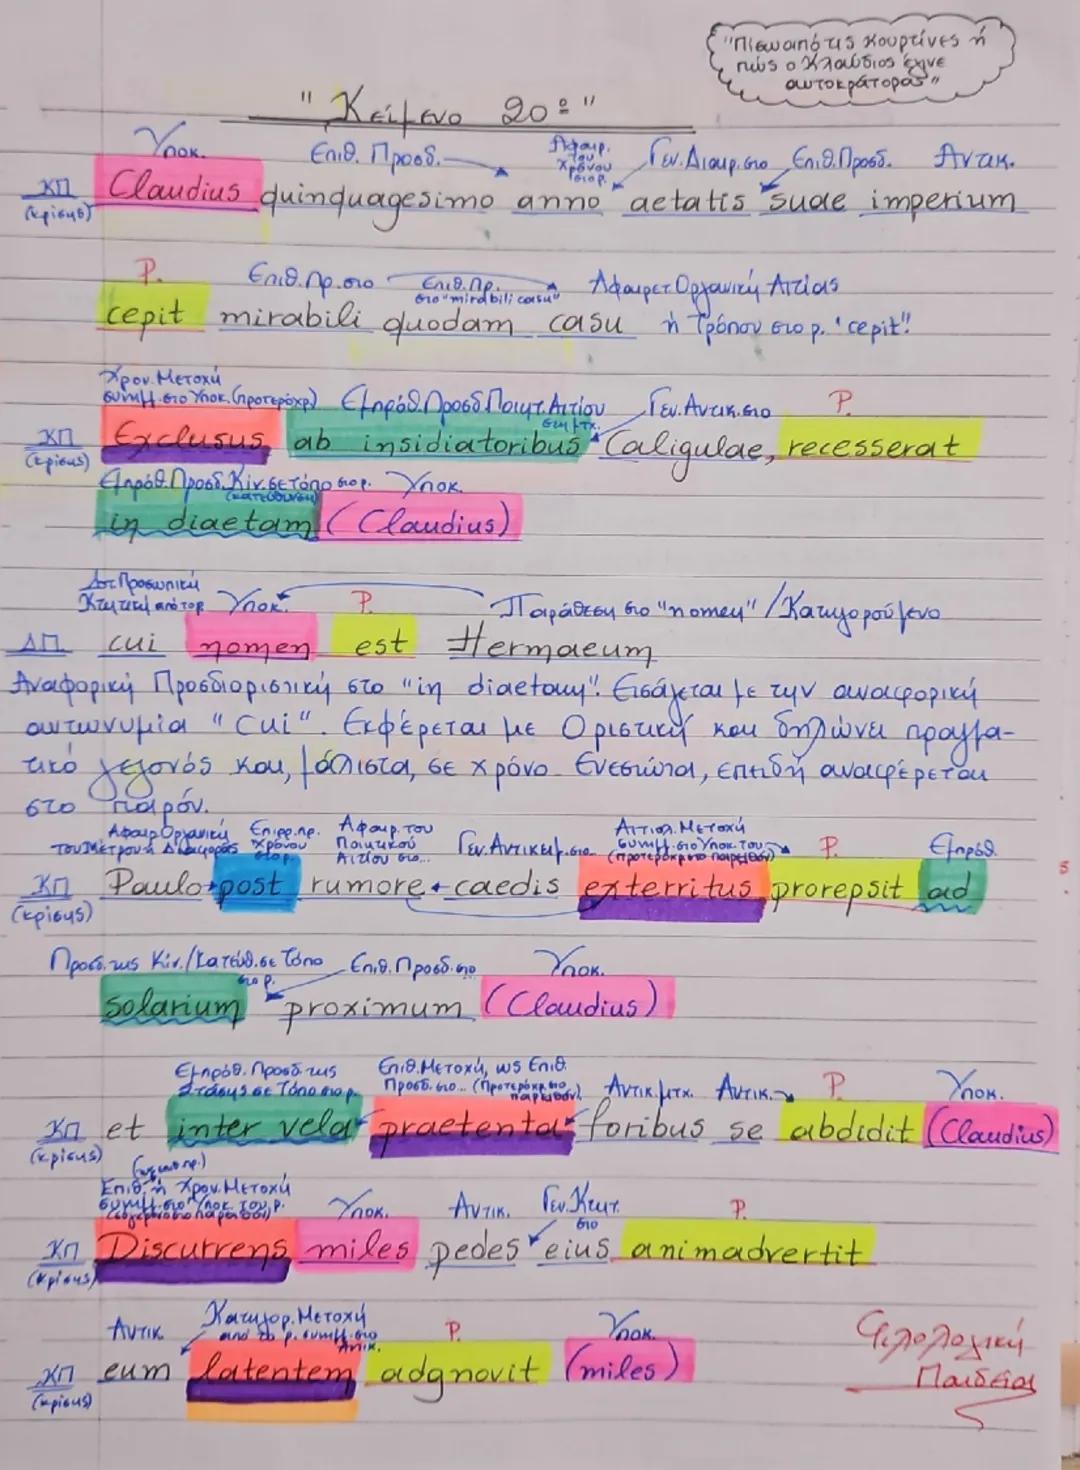 "Πίσω από τις κουρτίνες ή
πώς ο Κλαύδιος έγινε
αυτοκράτορας"
"Κείμενο 20º"
Υποκ. Επιθ. Προσδ. Αφαιρ. του χρόνου στο ρ. Γεν. Διαιρ. στο Επιθ. Προσδ. Αντικ.
ΚΠ (κρίσης) Claudius quinquagesimo anno aetatis suae imperium
Ρ. Επιθ. πρ. στο Επιθ. πρ. στο "mirabili casu" Αφαιρετ. Οργανική Αιτίας
cepit mirabili quodam casu ή Τρόπου στο ρ. "cepit"!
Χρον. Μετοχή
συνημμ. στο Υποκ. (προτερόχρ) Εμπρόθ. Προσδ. Ποιητ. Αιτίου στη μτχ. Γεν. Αντικ. στο Ρ.
ΚΠ (κρίσης) Exclusus ab insidiatoribus Caligulae, recesserat
Εμπρόθ. Προσδ. Κίν. σε τόπο στο ρ. (κατεύθυνση) Υποκ.
in diaetam (Claudius)
Δοτ. Προσωπική
Κτητική από το ρ. Υποκ. Ρ. Παράθεση στο "nomen" / Κατηγορούμενο
ΔΠ cui nomen est Hermaeum
Αναφορική Προσδιοριστική στο "in diaetam". Εισάγεται με την αναφορική
αντωνυμία "cui". Εκφέρεται με Οριστική και δηλώνει πραγμα-
τικό γεγονός και, μάλιστα, σε χρόνο Ενεστώτα, επειδή αναφέρεται
στο παρόν.
Αφαιρ Οργανική του Μέτρου ή Διαφοράς Επιρρ. πρ. χρόνου στο ρ. Αφαιρ. του Ποιητικού Αιτίου στο... Γεν. Αντικειμ. στο Αιτιολ. Μετοχή συνημμ. στο Υποκ. του (προτερόχρ στο παρελθόν) Ρ. Εμπρόθ.
ΚΠ (κρίσης) Paulo post rumore caedis exterritus prorepsit ad
Προσδ. της Κίν./Κατεύθ. σε τόπο στο ρ. Επιθ. Προσδ. στο Υποκ.
solarium proximum (Claudius)
Εμπρόθ. Προσδ. της Στάσης σε Τόπο στο ρ. Επιθ. Μετοχή, ως Επιθ. Προσδ. στο... (Προτερόχρ. στο παρελθόν) Αντικ. μτχ. Αντικ. Ρ. Υποκ.
ΚΠ (κρίσης) et inter vela praetenta foribus se abdidit (Claudius)
Επιθ. ή Χρον. Μετοχή συνημμ. στο Υποκ. του ρ. Υποκ. Αντικ. Γεν. Κτητ. στο Ρ.
ΚΠ (κρίσης) Discurrens miles pedes eius animadvertit
Αντικ. Κατηγορ. Μετοχή από το ρ. συνημμ. στο Αντικ. Ρ. Υποκ.
ΚΠ (κρίσης) eum latentem adgnovit (miles)
Φιλολογική
Παιδεία